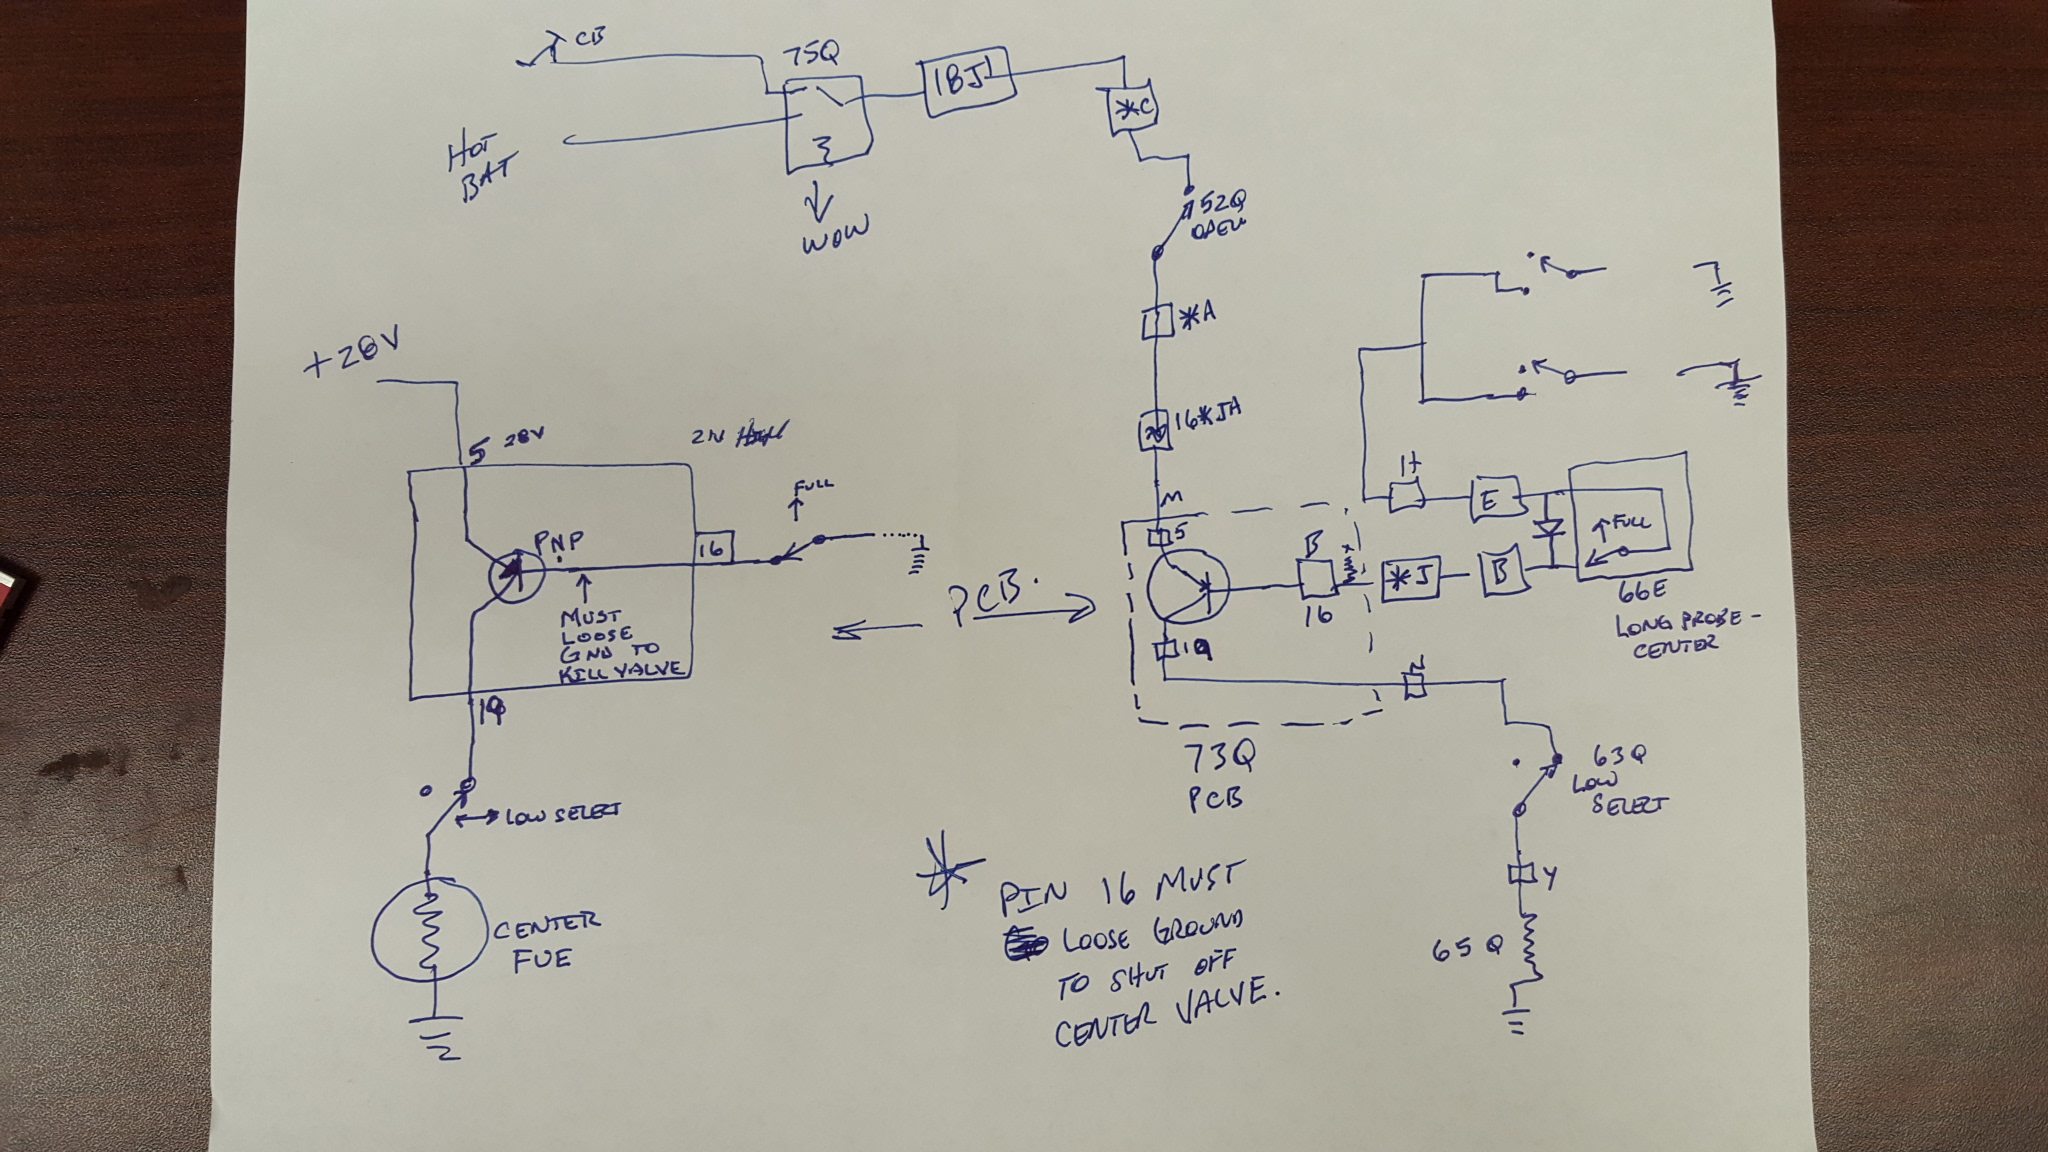 CB
75Q
18J
*C
HOT
BAT
WOW
52Q
OPEN
*A
16*JA
M
5
+28V
5 28V
PNP
16
FULL
MUST
LOOSE
GND TO
KILL VALVE
19
LOW SELECT
CENTER
FUE
PCB.
B
16
19
*J
B
E
FULL
66E
LONG PROBE -
CENTER
N
73Q
PCB
63Q
LOW
SELECT
Y
65Q
* PIN 16 MUST
LOOSE GROUND
TO SHUT OFF
CENTER VALVE.